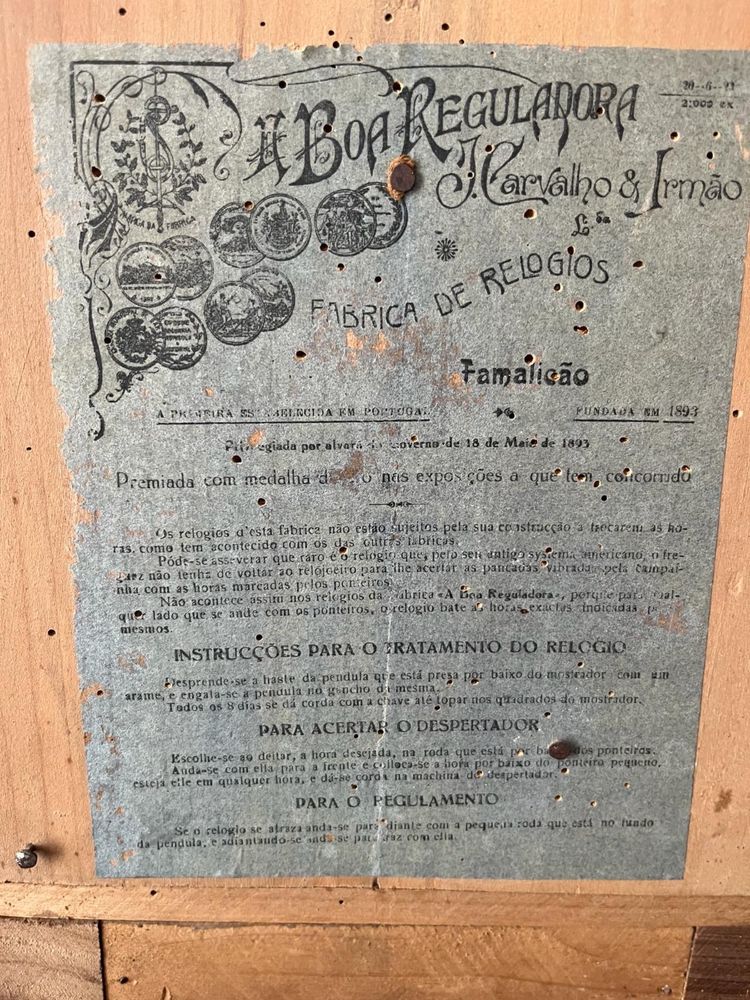 A BOA REGULADORA
20--6--23
2:000 ex
J. Carvalho & Irmão
L.da
FABRICA DE RELOGIOS
Famalicão
A PRIMEIRA ESTABELECIDA EM PORTUGAL
FUNDADA EM 1893
Privilegiada por alvará do Governo de 18 de Maio de 1893
Premiada com medalha d'ouro nas exposições a que tem concorrido
Os relogios d'esta fabrica não estão sujeitos pela sua construcção a trocarem as ho-
ras, como tem acontecido com os das outras fabricas.
Póde-se asseverar que raro é o relogio que, pelo seu antigo systema americano, o fre-
guez não tenha de voltar ao relojoeiro para lhe acertar as pancadas vibradas pela campai-
nha com as horas marcadas pelos ponteiros.
Não acontece assim nos relogios da fabrica «A Boa Reguladora», porque para qual-
quer lado que se ande com os ponteiros, o relogio bate as horas exactas indicadas
mesmos.
INSTRUCÇÕES PARA O TRATAMENTO DO RELOGIO
Desprende-se a haste da pendula que está presa por baixo do mostrador com um
arame, e engata-se a pendula no gancho da mesma.
Todos os 8 dias se dá corda com a chave até topar nos quadrados do mostrador.
PARA ACERTAR O DESPERTADOR
Escolhe-se ao deitar, a hora desejada, na roda que está por baixo dos ponteiros.
Anda-se com ella para a frente e colloca-se a hora por baixo do ponteiro pequeno,
esteja elle em qualquer hora, e dá-se corda na machina do despertador.
PARA O REGULAMENTO
Se o relogio se atraza anda-se para diante com a pequena roda que está no fundo
da pendula, e adiantando-se anda-se para traz com ella.